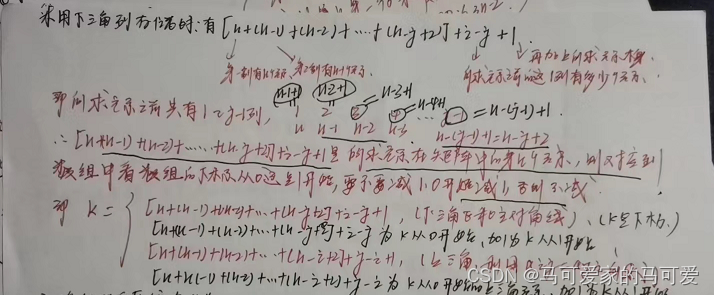 采用下三角列存储时:有[n+(n-1)+(n-2)+…+(n-j+2)]+i-j+1
第一列有n个元, 第2列有n-1个元.
再加上所求元素本身.
所求元素前面这1列有多少个元素.
即所求元素之前共有1~j-1列,
n-1+1 n-2+1 n-3+1 n-4+1 =n-(j-1)+1.
1 2 3 4 j-1
n n-1 n-2 n-3 n-(j-1)+1=n-j+2
∴[n+(n-1)+(n-2)+…+(n-j+2)]+i-j+1是所求元素在矩阵中的第几个元素,则对应到
数组中看数组的下标从0还是1开始,要不要减1,0开始减1,否则不减.
即 K=
[n+(n-1)+(n-2)+…+(n-j+2)]+i-j+1, (下三角区和主对角线)、(K是下标.)
[n+(n-1)+(n-2)+…+(n-j+2)]+i-j 为K从0开始,加1为K从1开始
[n+(n-1)+(n-2)+…+(n-i+2)]+j-i+1,
[n+(n-1)+(n-2)+…+(n-i+2)]+j-i 为K从0开始
CSDN @马可爱家的马可爱